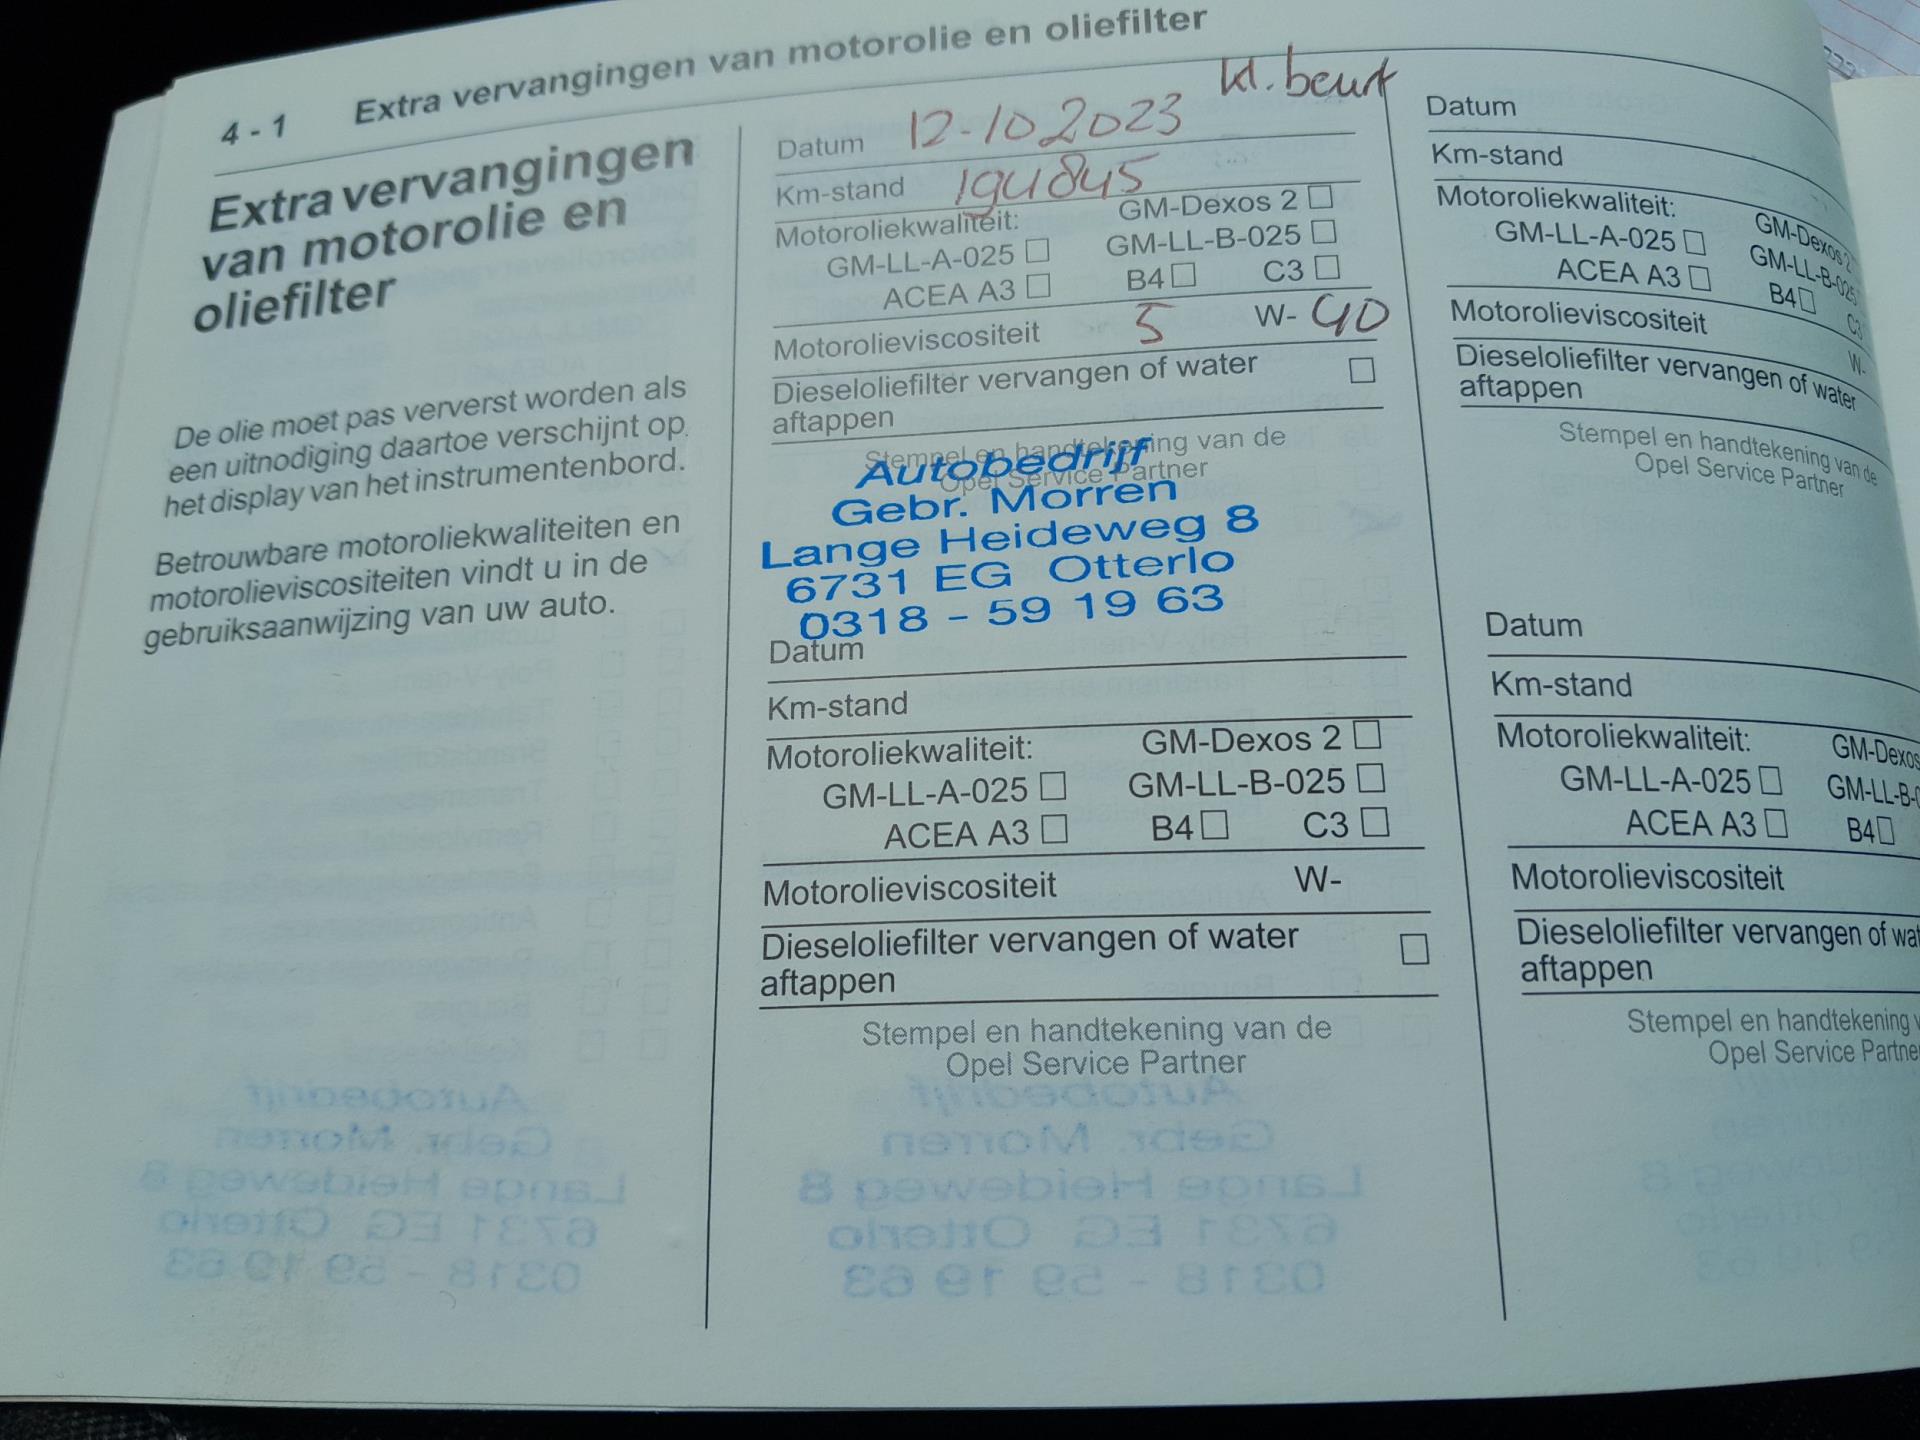 4 - 1 Extra vervangingen van motorolie en oliefilter
Extra vervangingen
van motorolie en
oliefilter
De olie moet pas ververst worden als
een uitnodiging daartoe verschijnt op
het display van het instrumentenbord.
Betrouwbare motoroliekwaliteiten en
motorolieviscositeiten vindt u in de
gebruiksaanwijzing van uw auto.
kl. beurt
Datum 12-10 2023
Km-stand 194845
Motoroliekwaliteit: GM-Dexos 2
GM-LL-A-025 GM-LL-B-025
ACEA A3 B4 C3
Motorolieviscositeit 5 W- 40
Dieseloliefilter vervangen of water
aftappen
Stempel en handtekening van de
Opel Service Partner
Autobedrijf
Gebr. Morren
Lange Heideweg 8
6731 EG Otterlo
0318 - 59 19 63
Datum
Km-stand
Motoroliekwaliteit: GM-Dexos 2
GM-LL-A-025 GM-LL-B-025
ACEA A3 B4 C3
Motorolieviscositeit W-
Dieseloliefilter vervangen of water
aftappen
Stempel en handtekening van de
Opel Service Partner
Datum
Km-stand
Motoroliekwaliteit: GM-Dexos 2
GM-LL-A-025 GM-LL-B-025
ACEA A3 B4 C3
Motorolieviscositeit W-
Dieseloliefilter vervangen of water
aftappen
Stempel en handtekening van de
Opel Service Partner
Datum
Km-stand
Motoroliekwaliteit: GM-Dexos
GM-LL-A-025 GM-LL-B-0
ACEA A3 B4
Motorolieviscositeit
Dieseloliefilter vervangen of wa
aftappen
Stempel en handtekening v
Opel Service Partne